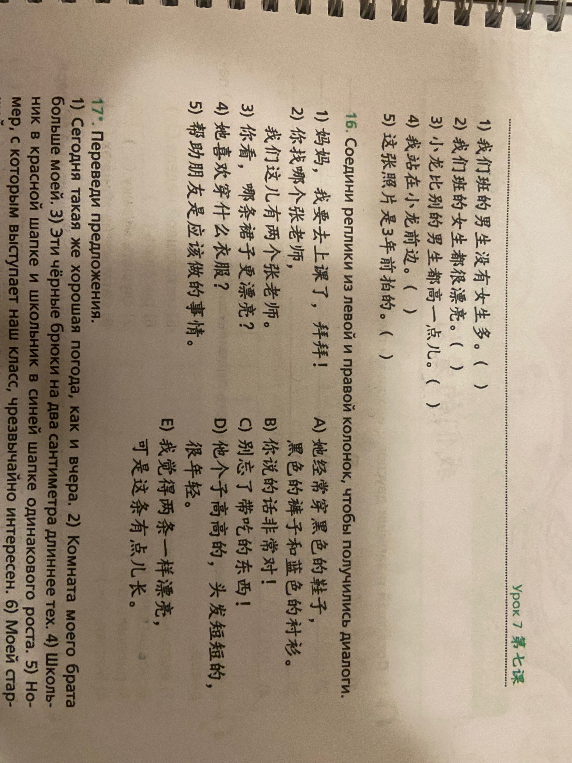 Урок 7 第七课
1) 我们班的男生没有女生多。( )
2) 我们班的女生都很漂亮。( )
3) 小龙比别的男生都高一点儿。( )
4) 我站在小龙前边。( )
5) 这张照片是3年前拍的。( )
16. Соедини реплики из левой и правой колонок, чтобы получились диалоги.
1) 妈妈，我要去上课了，拜拜！
2) 你找哪个张老师，
我们这儿有两个张老师。
3) 你看，哪条裙子更漂亮？
4) 她喜欢穿什么衣服？
5) 帮助朋友是应该做的事情。
A) 她经常穿黑色的鞋子，
黑色的裤子和蓝色的衬衫。
B) 你说的话非常对！
C) 别忘了带吃的东西！
D) 他个子高高的，头发短短的，
很年轻。
E) 我觉得两条一样漂亮，
可是这条有点儿长。
17*. Переведи предложения.
1) Сегодня такая же хорошая погода, как и вчера. 2) Комната моего брата
больше моей. 3) Эти чёрные брюки на два сантиметра длиннее тех. 4) Школь-
ник в красной шапке и школьник в синей шапке одинакового роста. 5) Но-
мер, с которым выступает наш класс, чрезвычайно интересен. 6) Моей стар-